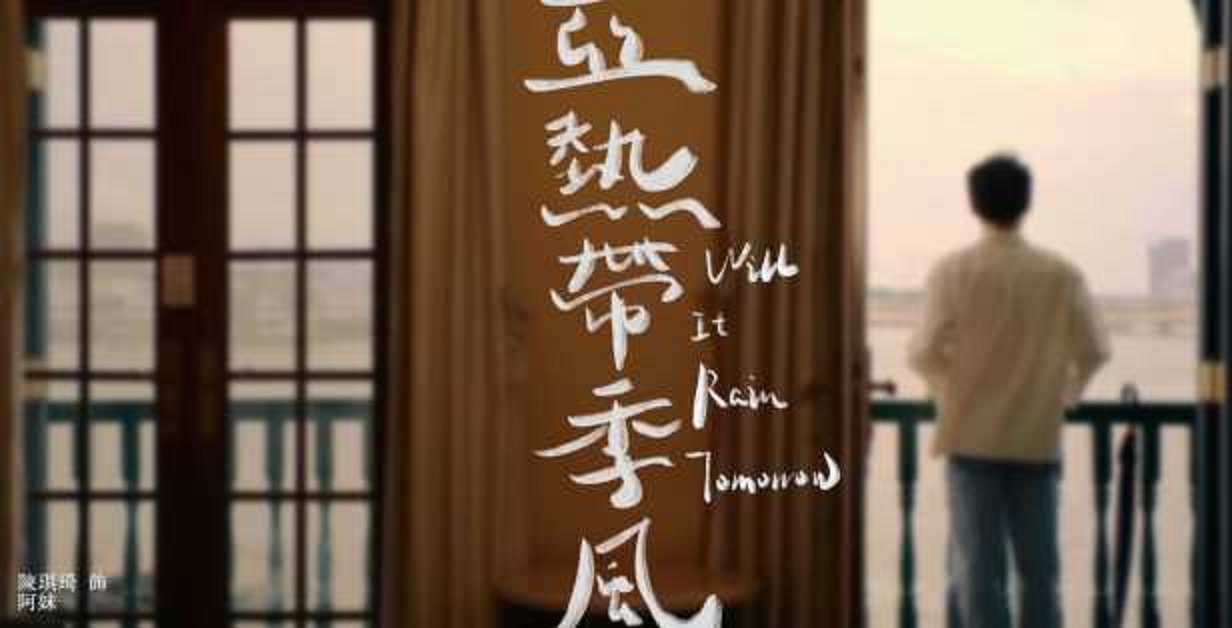 亞熱帶季風
Will
It
Rain
Tomorrow
陳琪琦 飾
阿妹